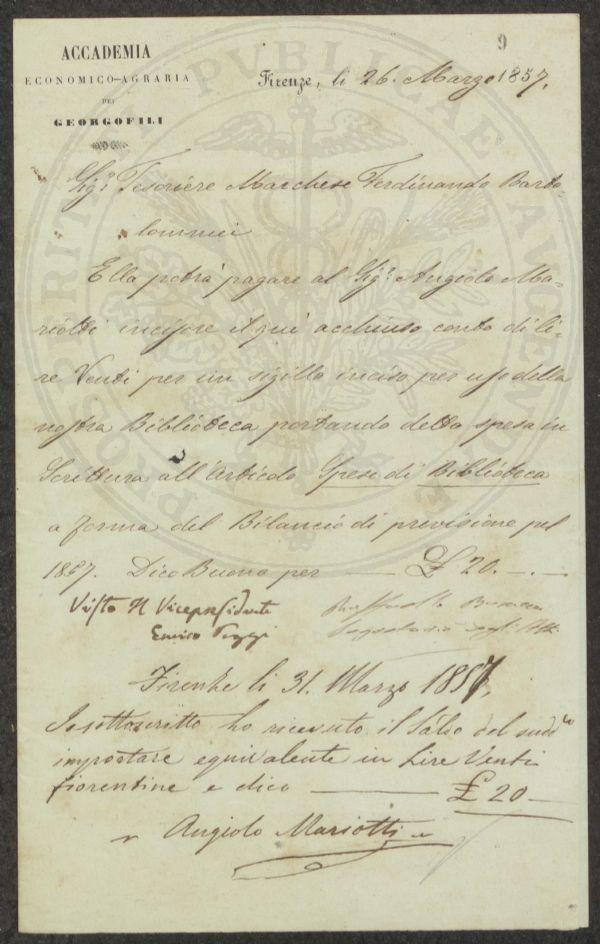 9
ACCADEMIA
ECONOMICO-AGRARIA
DEI
GEORGOFILI
Firenze, li 26. Marzo 1857.
Sig.r Tesoriere Marchese Ferdinando Barto-
lommei
Ella potrà pagare al Sig.r Angiolo Ma-
riotti incisore il qui acchiuso conto di li-
re Venti per un sigillo inciso per uso della
nostra Biblioteca portando detta spesa in
Scrittura all'Articolo Spese di Biblioteca
a forma del Bilancio di previsione pel
1857. Dico Buono per — £ 20. —
Visto Il Vicepresidente
Enrico Poggi
Segretario degli Atti
Firenze li 31. Marzo 1857,
Io sottoscritto ho ricevuto il Saldo del sudd.to
importare equivalente in Lire Venti
fiorentine e dico — £ 20 —
Angiolo Mariotti